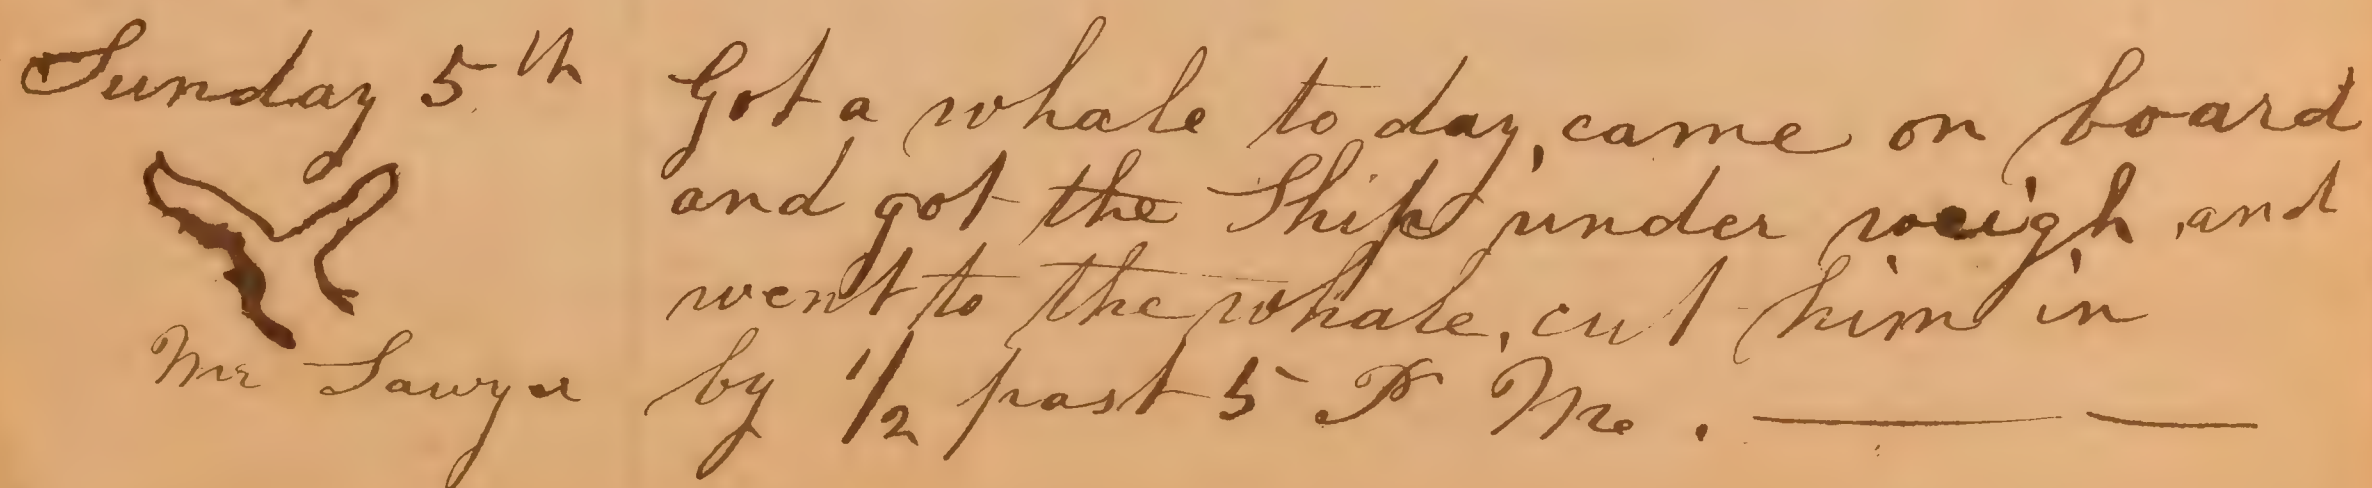 Sunday 5th
Got a whale to day, came on board
and got the Ship under weigh, and
went to the whale, cut him in
by 1/2 past 5 P M. ——
Mr Sawyer